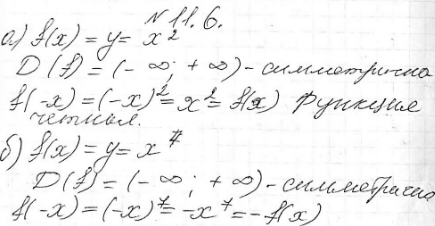 № 11.6.
а) f(x) = y = x²
D(f) = (-∞; +∞) - симметрична
f(-x) = (-x)² = x² = f(x) Функция
четная.
б) f(x) = y = x⁷
D(f) = (-∞; +∞) - симметрична
f(-x) = (-x)⁷ = -x⁷ = -f(x)